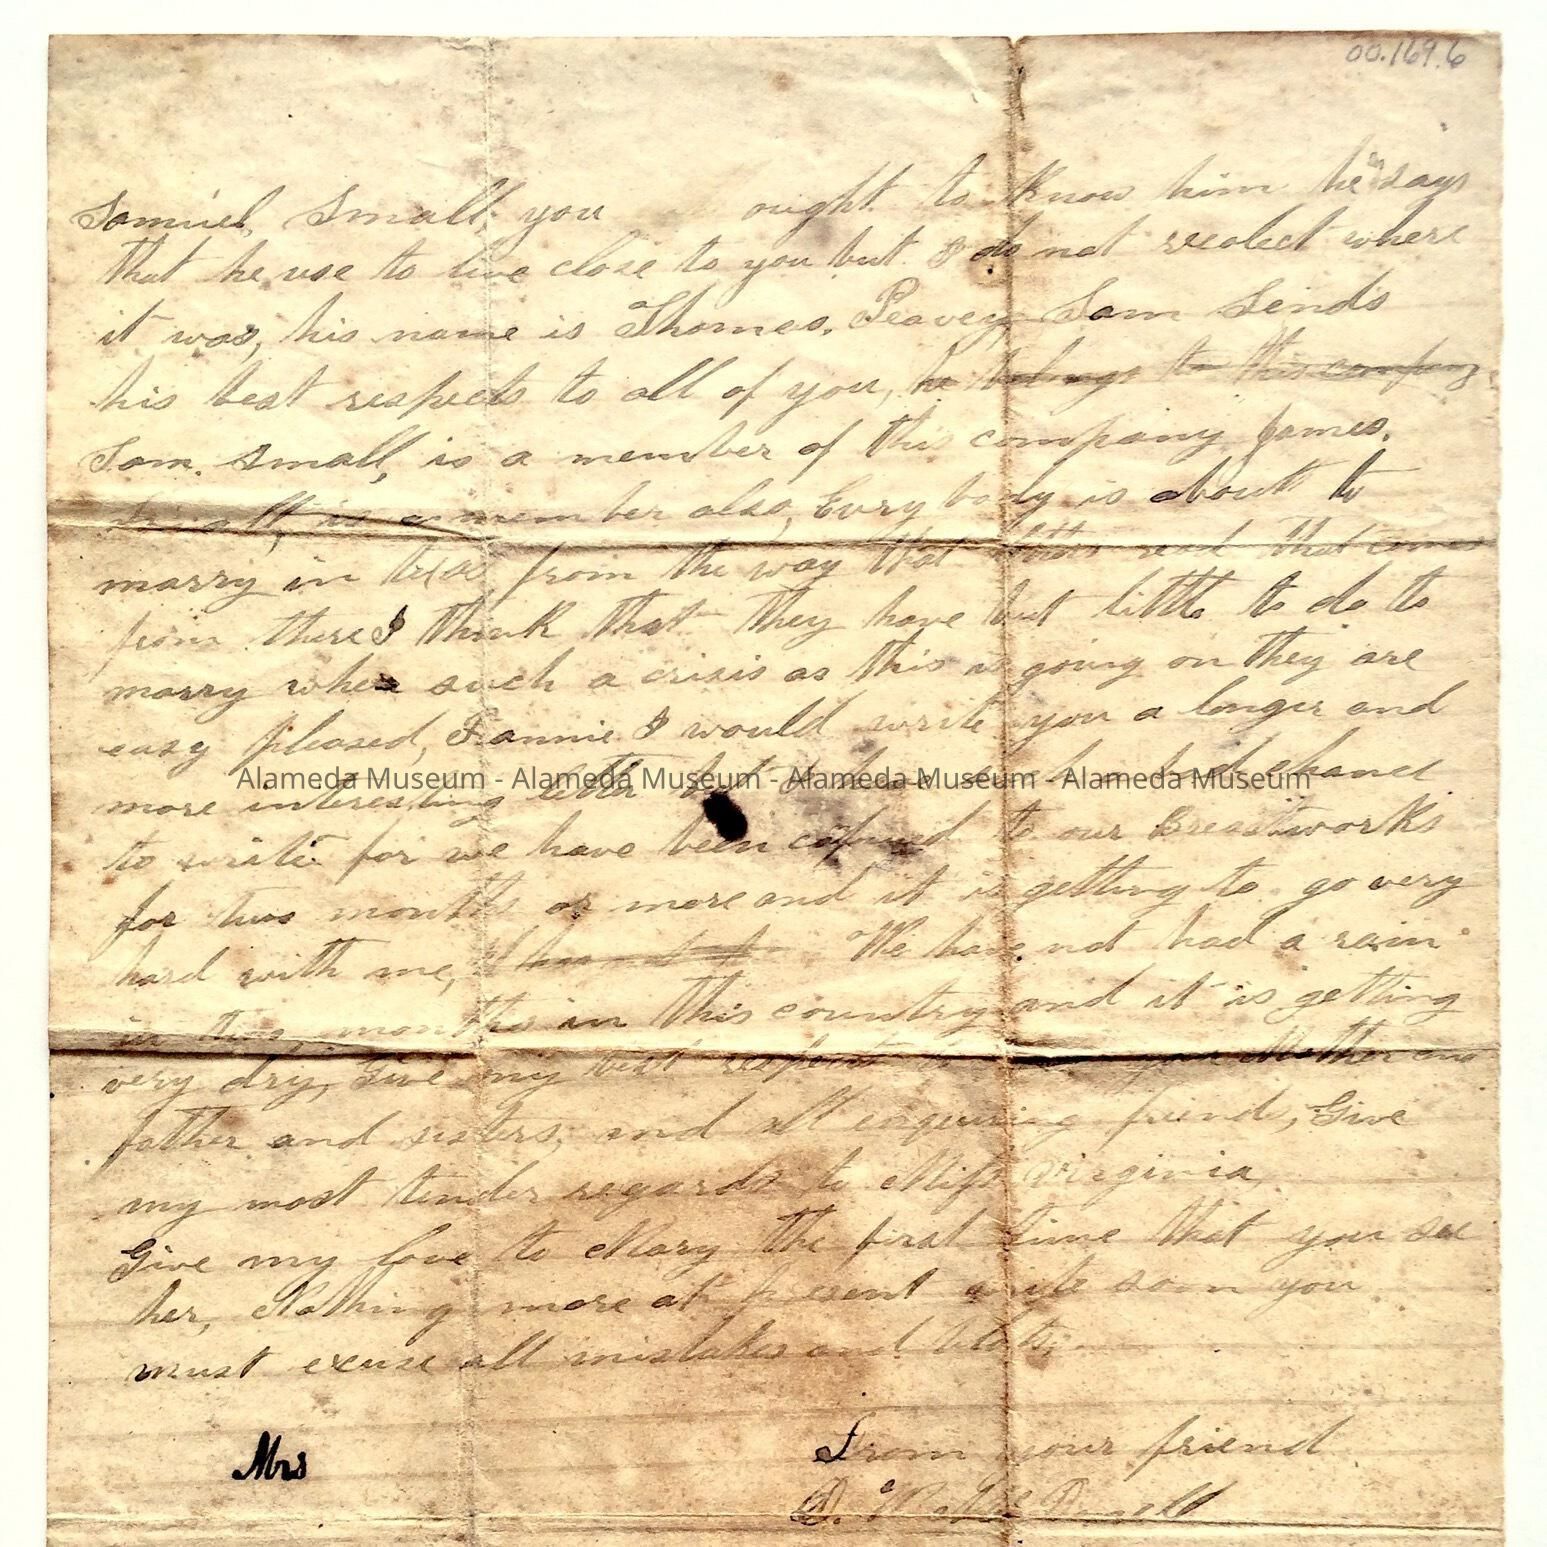 00.169.6
Samuel Small, you ought to know him he says
that he use to live close to you but I do not recolect where
it was, his name is Thomas. Peavey Sam Sends
his best respects to all of you, he belongs to this company
Sam. Small, is a member of this company James.
Small, is a member also, Evry body is about to
marry in texas from the way that read that comes
from there I think that they have but little to do to
marry when such a crisis as this is going on they are
easy pleased, Fannie I would write you a longer and
more interesting letter but I have had chance
Alameda Museum - Alameda Museum - Alameda Museum - Alameda Museum
to write for we have been to our Breastworks
for two months or more and it is getting to go very
hard with me, We have not had a rain
in two months in this country and it is getting
very dry, Give my best respects to your Mother and
father and sisters, and all enquiring friends, Give
my most tender regards to Miss Virginia,
Give my love to Mary the first time that you see
her, Nothing more at present write soon you
must excuse all mistakes and blots;
Mrs
From your friend